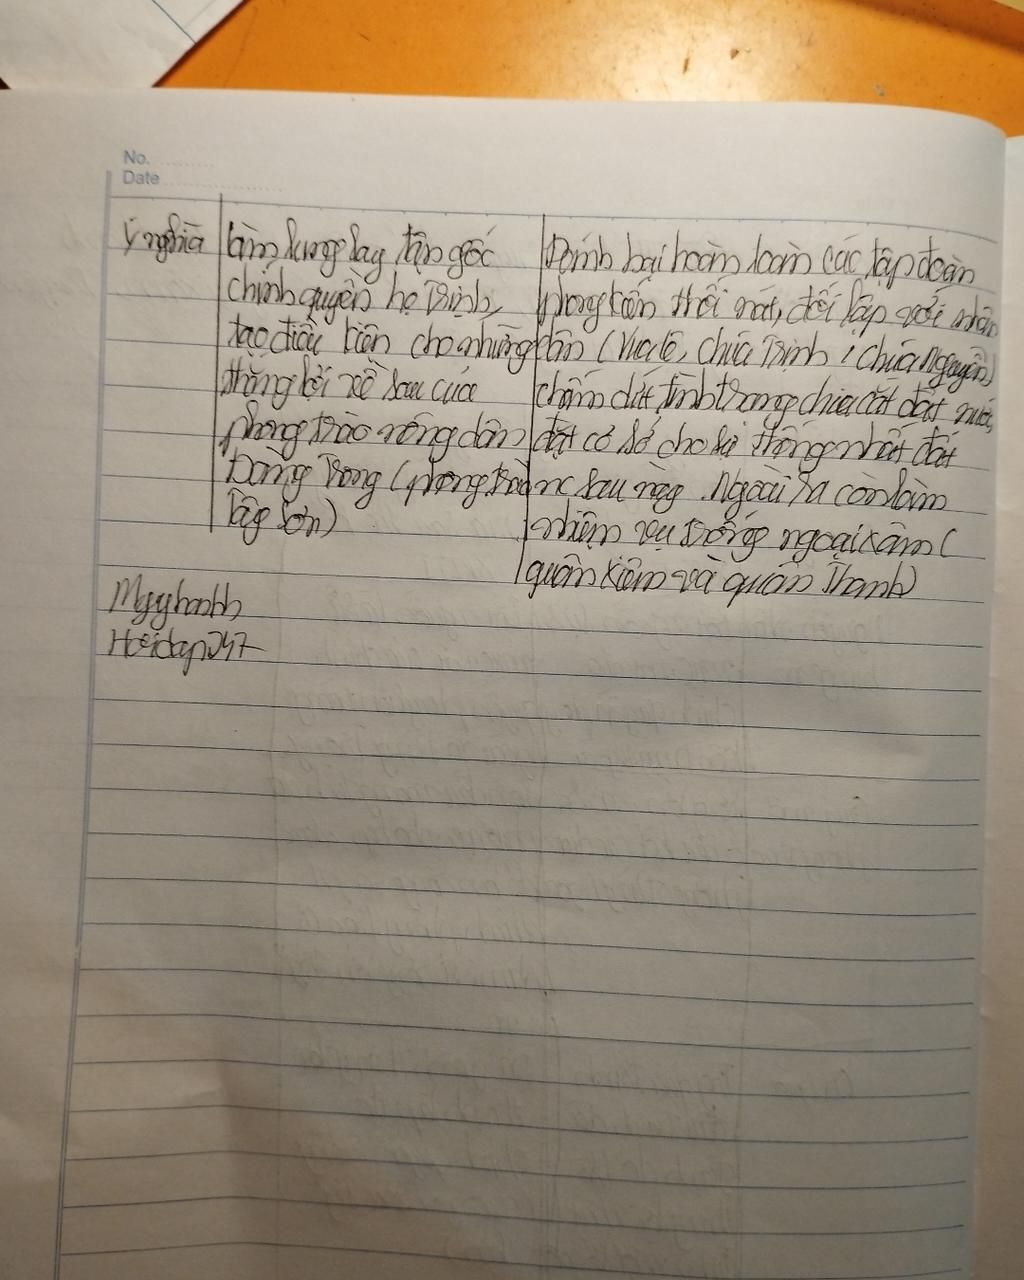 No.
Date
Ý nghĩa
làm lung lay tận gốc
chính quyền họ Trịnh,
tạo điều kiện cho những
thắng lợi về sau của
phong trào nông dân
Đàng Trong (phong trào
Tây Sơn)
Đánh bại hoàn toàn các tập đoàn
phong kiến thối nát, đối lập với nhân
dân (Vua lê, chúa Trịnh, chúa Nguyễn)
chấm dứt tình trạng chia cắt đất nước,
đặt cơ sở cho sự thống nhất đất
nc sau này. Ngoài ra còn làm
nhiệm vụ trống ngoại xâm (
quân Xiêm và quân Thanh)
Myyhanhh
Hoidap247